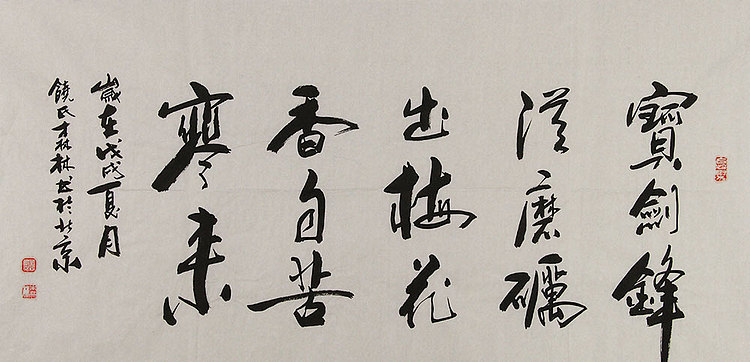 寶劍鋒
從磨礪
出梅花
香自苦
寒来
歲在戊戌夏月
饒氏才林林书於北京